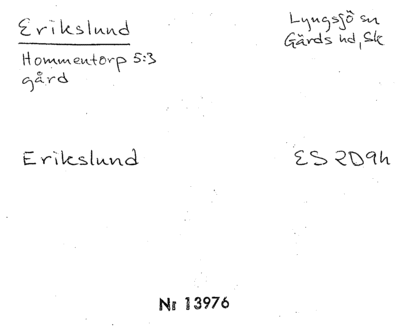 Erikslund
Lyngsjö sn
Gärds hd, Sk
Hommentorp 5:3
gård
Erikslund
ES 2D9h
Nr 13976